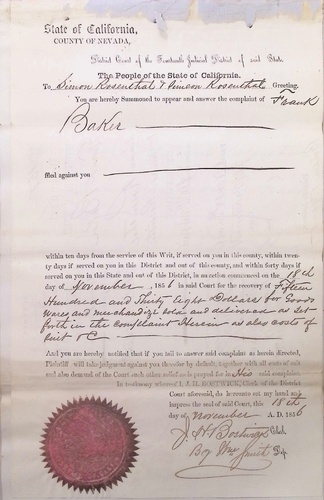 State of California,
COUNTY OF NEVADA,
District Court of the Fourteenth Judicial District of said State
The People of the State of California.
To Simon Rosenthal & Simson Rosenthal Greeting.
You are hereby Summoned to appear and answer the complaint of Frank
Baker
filed against you
within ten days from the service of this Writ, if served on you in this county, within twen-
ty days if served on you in this District and out of this county, and within forty days if
served on you in this State and out of this District, in an action commenced on the 18th
day of November, 1856 in said Court for the recovery of Fifteen
Hundred and Thirty Eight Dollars for Goods
Wares and merchandize sold and delivered as set
forth in the complaint Herein as also costs of
suit &C
And you are hereby notified that if you fail to answer said complaint as herein directed,
Plaintiff will take judgment against you therefor by default, together with all costs of suit
and also demand of the Court such other relief as is prayed for in His said complaint.
In testimony whereof I, J. H. BOSTWICK, Clerk of the District
Court aforesaid, do hereunto set my hand and
impress the seal of said Court, this 18th
day of November A. D. 1856
J H Bostwick Clerk.
By Wm Smith Dep.